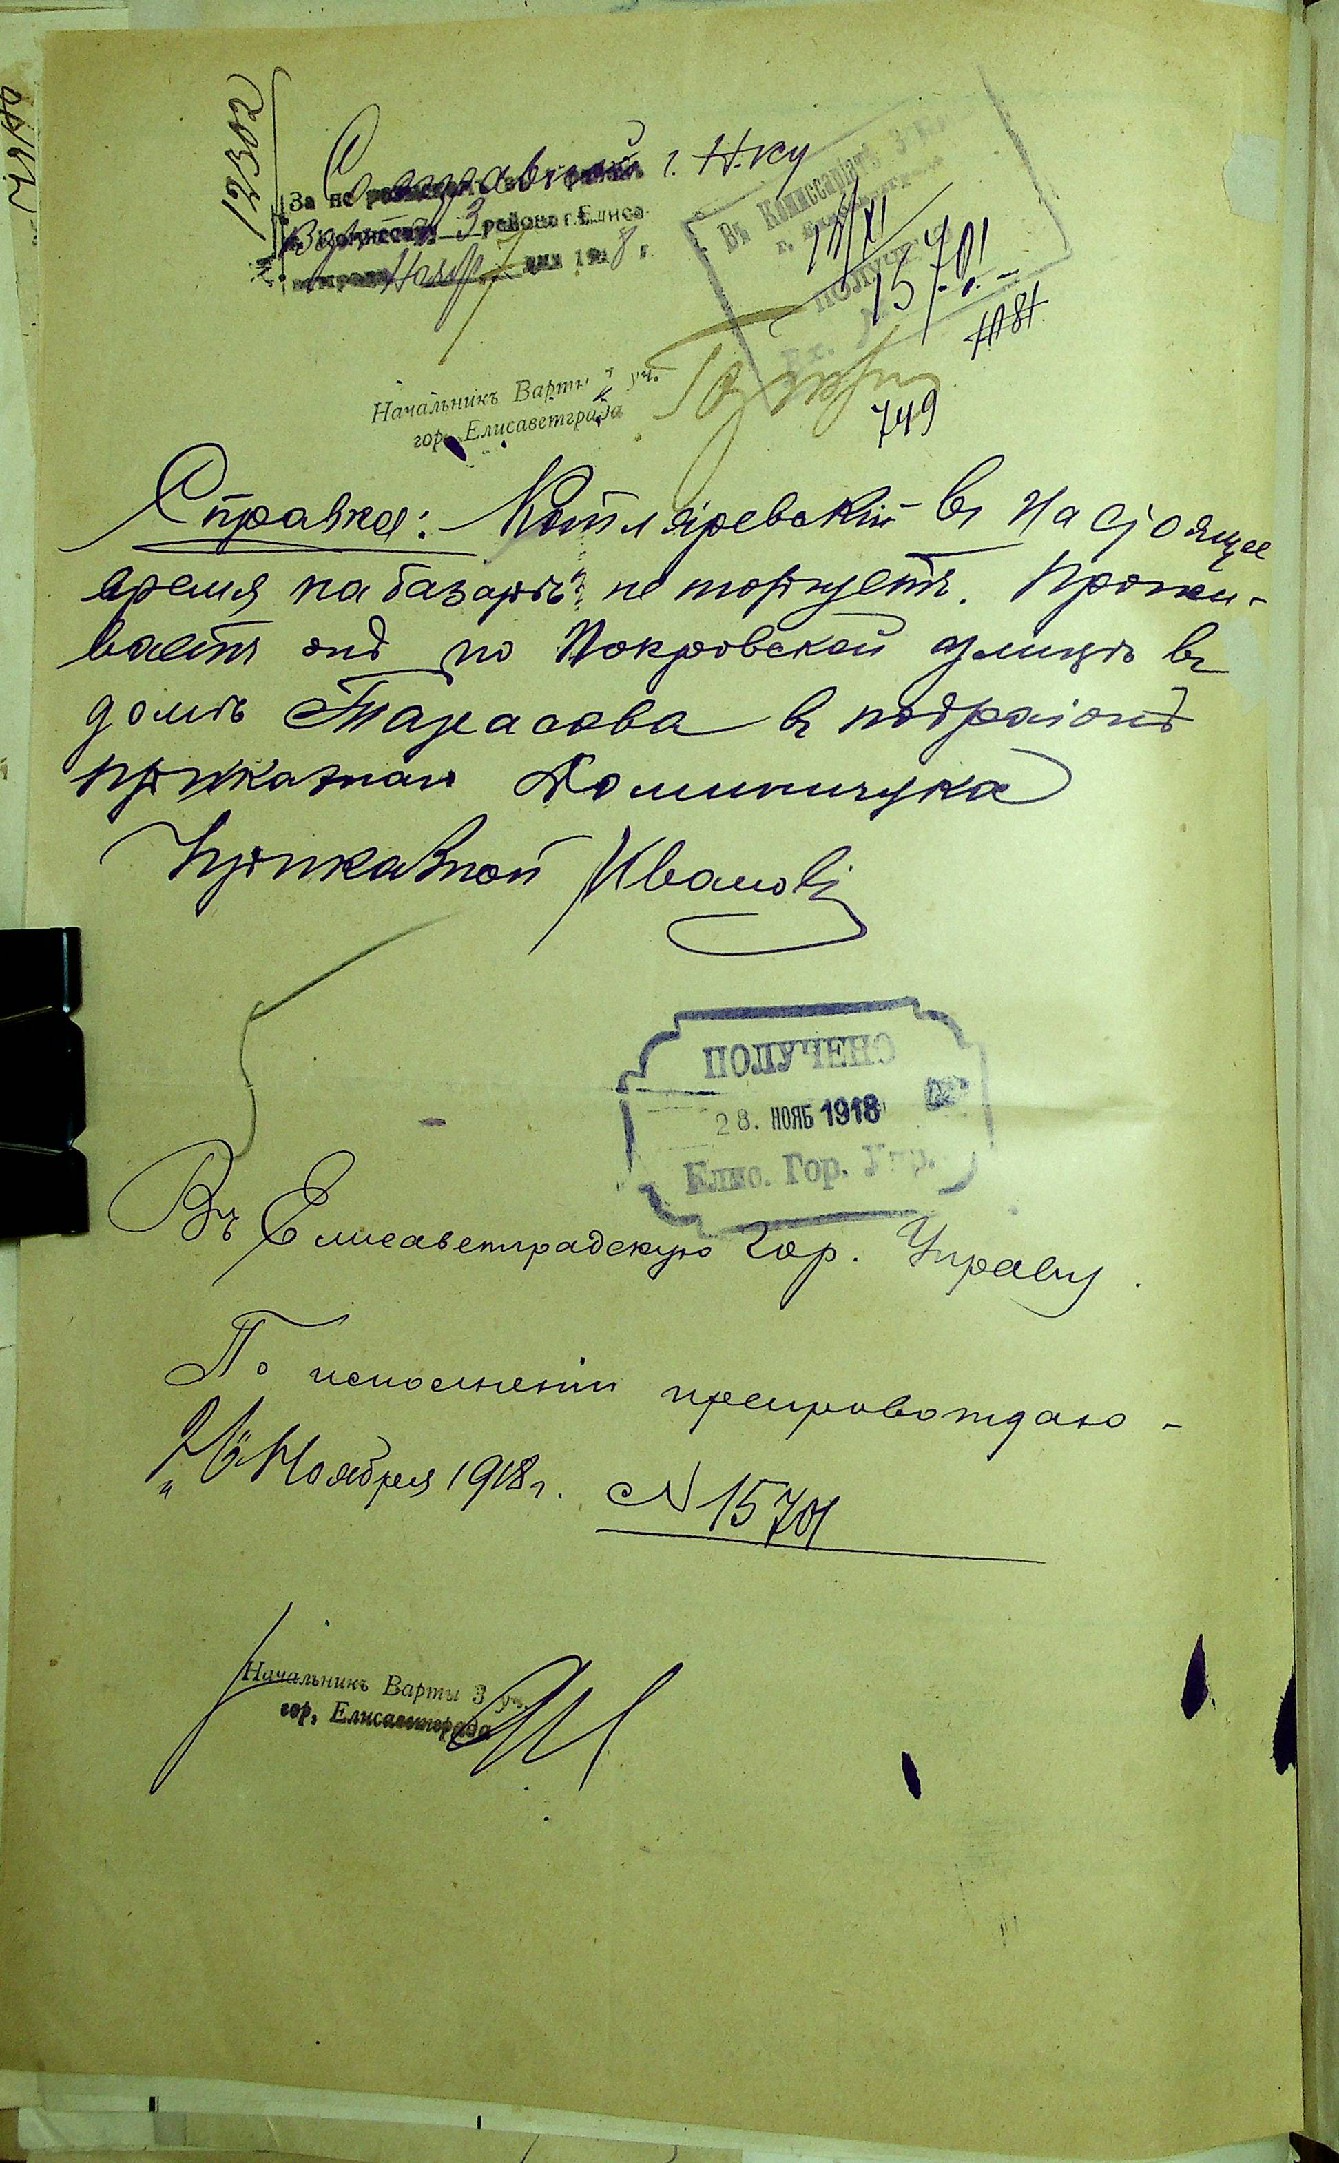 12302
г. Н-ку
За не
Варты 3 района г. Елиса-
дня 1918 г.
Въ Комиссаріатъ 3
ПОЛУЧЕНО
14/XI
15701
Вх. №
749
Начальникъ Варты уч.
гор. Елисаветграда
Справка: Котляревскій въ настоящее
время на базарѣ не торгуетъ. Прожи-
ваетъ онъ по Покровской улицѣ въ
домѣ Тарасова в подраіонѣ
приказнаго Доминичука
Приказной Ивановъ
ПОЛУЧЕНО
28. НОЯБ 1918
Елис. Гор. Упр.
Въ Елисаветградскую Гор. Управу.
По исполненіи препровождаю -
„26" Ноября 1918 г. № 15701
Начальникъ Варты 3 уч.
гор. Елисаветграда